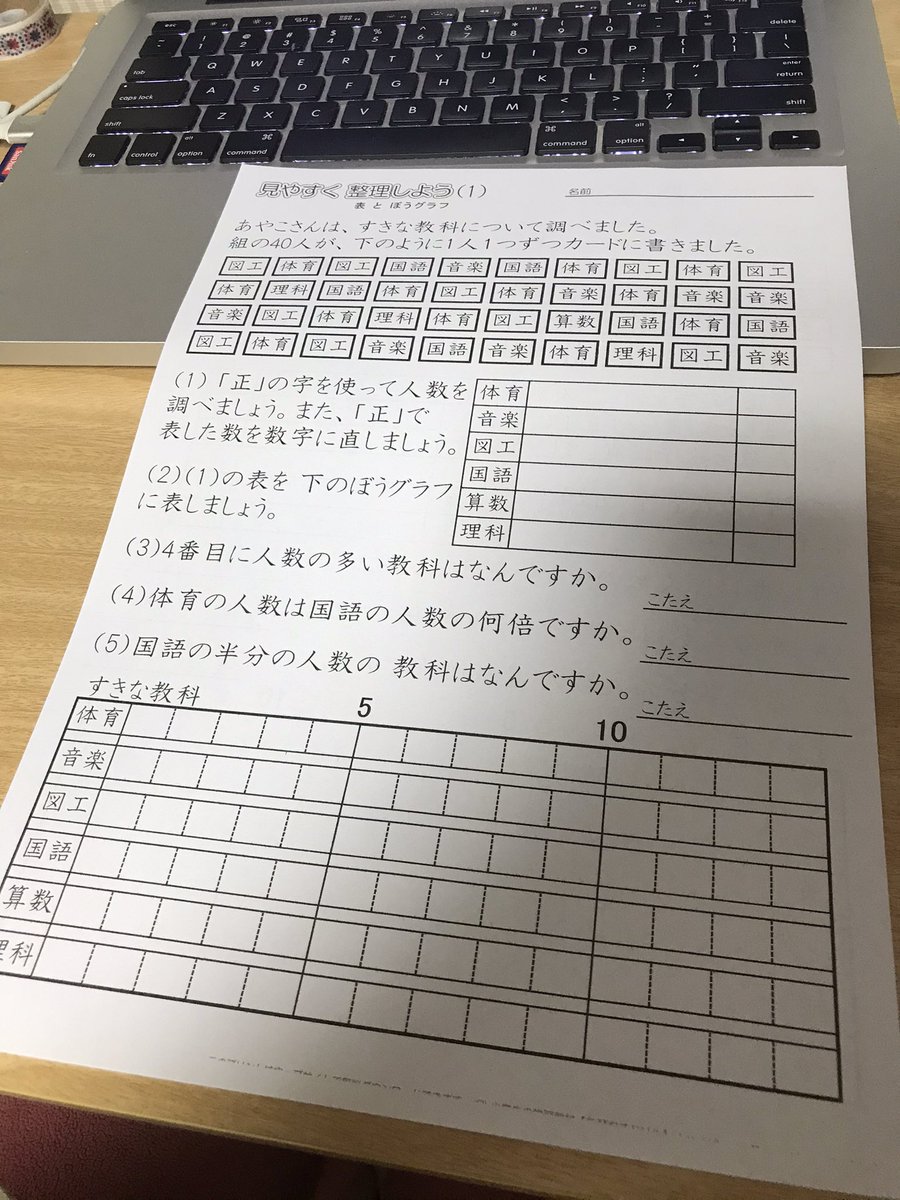 esc
delete
tab Q W E R T Y U I O P
caps lock A S D F G H J K L enter return
shift Z X C V B N M shift
fn control alt option ⌘ command ⌘ command alt option
見やすく 整理しよう(1) 名前
表 と ぼうグラフ
あやこさんは、すきな教科について調べました。
組の40人が、下のように1人1つずつカードに書きました。
図工 体育 図工 国語 音楽 国語 体育 図工 体育 図工
体育 理科 国語 体育 図工 体育 音楽 体育 音楽 音楽
音楽 図工 体育 理科 体育 図工 算数 国語 体育 国語
図工 体育 図工 音楽 国語 音楽 体育 理科 図工 音楽
(1)「正」の字を使って人数を
調べましょう。また、「正」で
表した数を数字に直しましょう。
体育
音楽
図工
国語
算数
理科
(2)(1)の表を 下のぼうグラフ
に表しましょう。
(3)4番目に人数の多い教科はなんですか。
こたえ
(4)体育の人数は国語の人数の何倍ですか。
こたえ
(5)国語の半分の人数の 教科はなんですか。
こたえ
すきな教科 5 10
体育
音楽
図工
国語
算数
理科